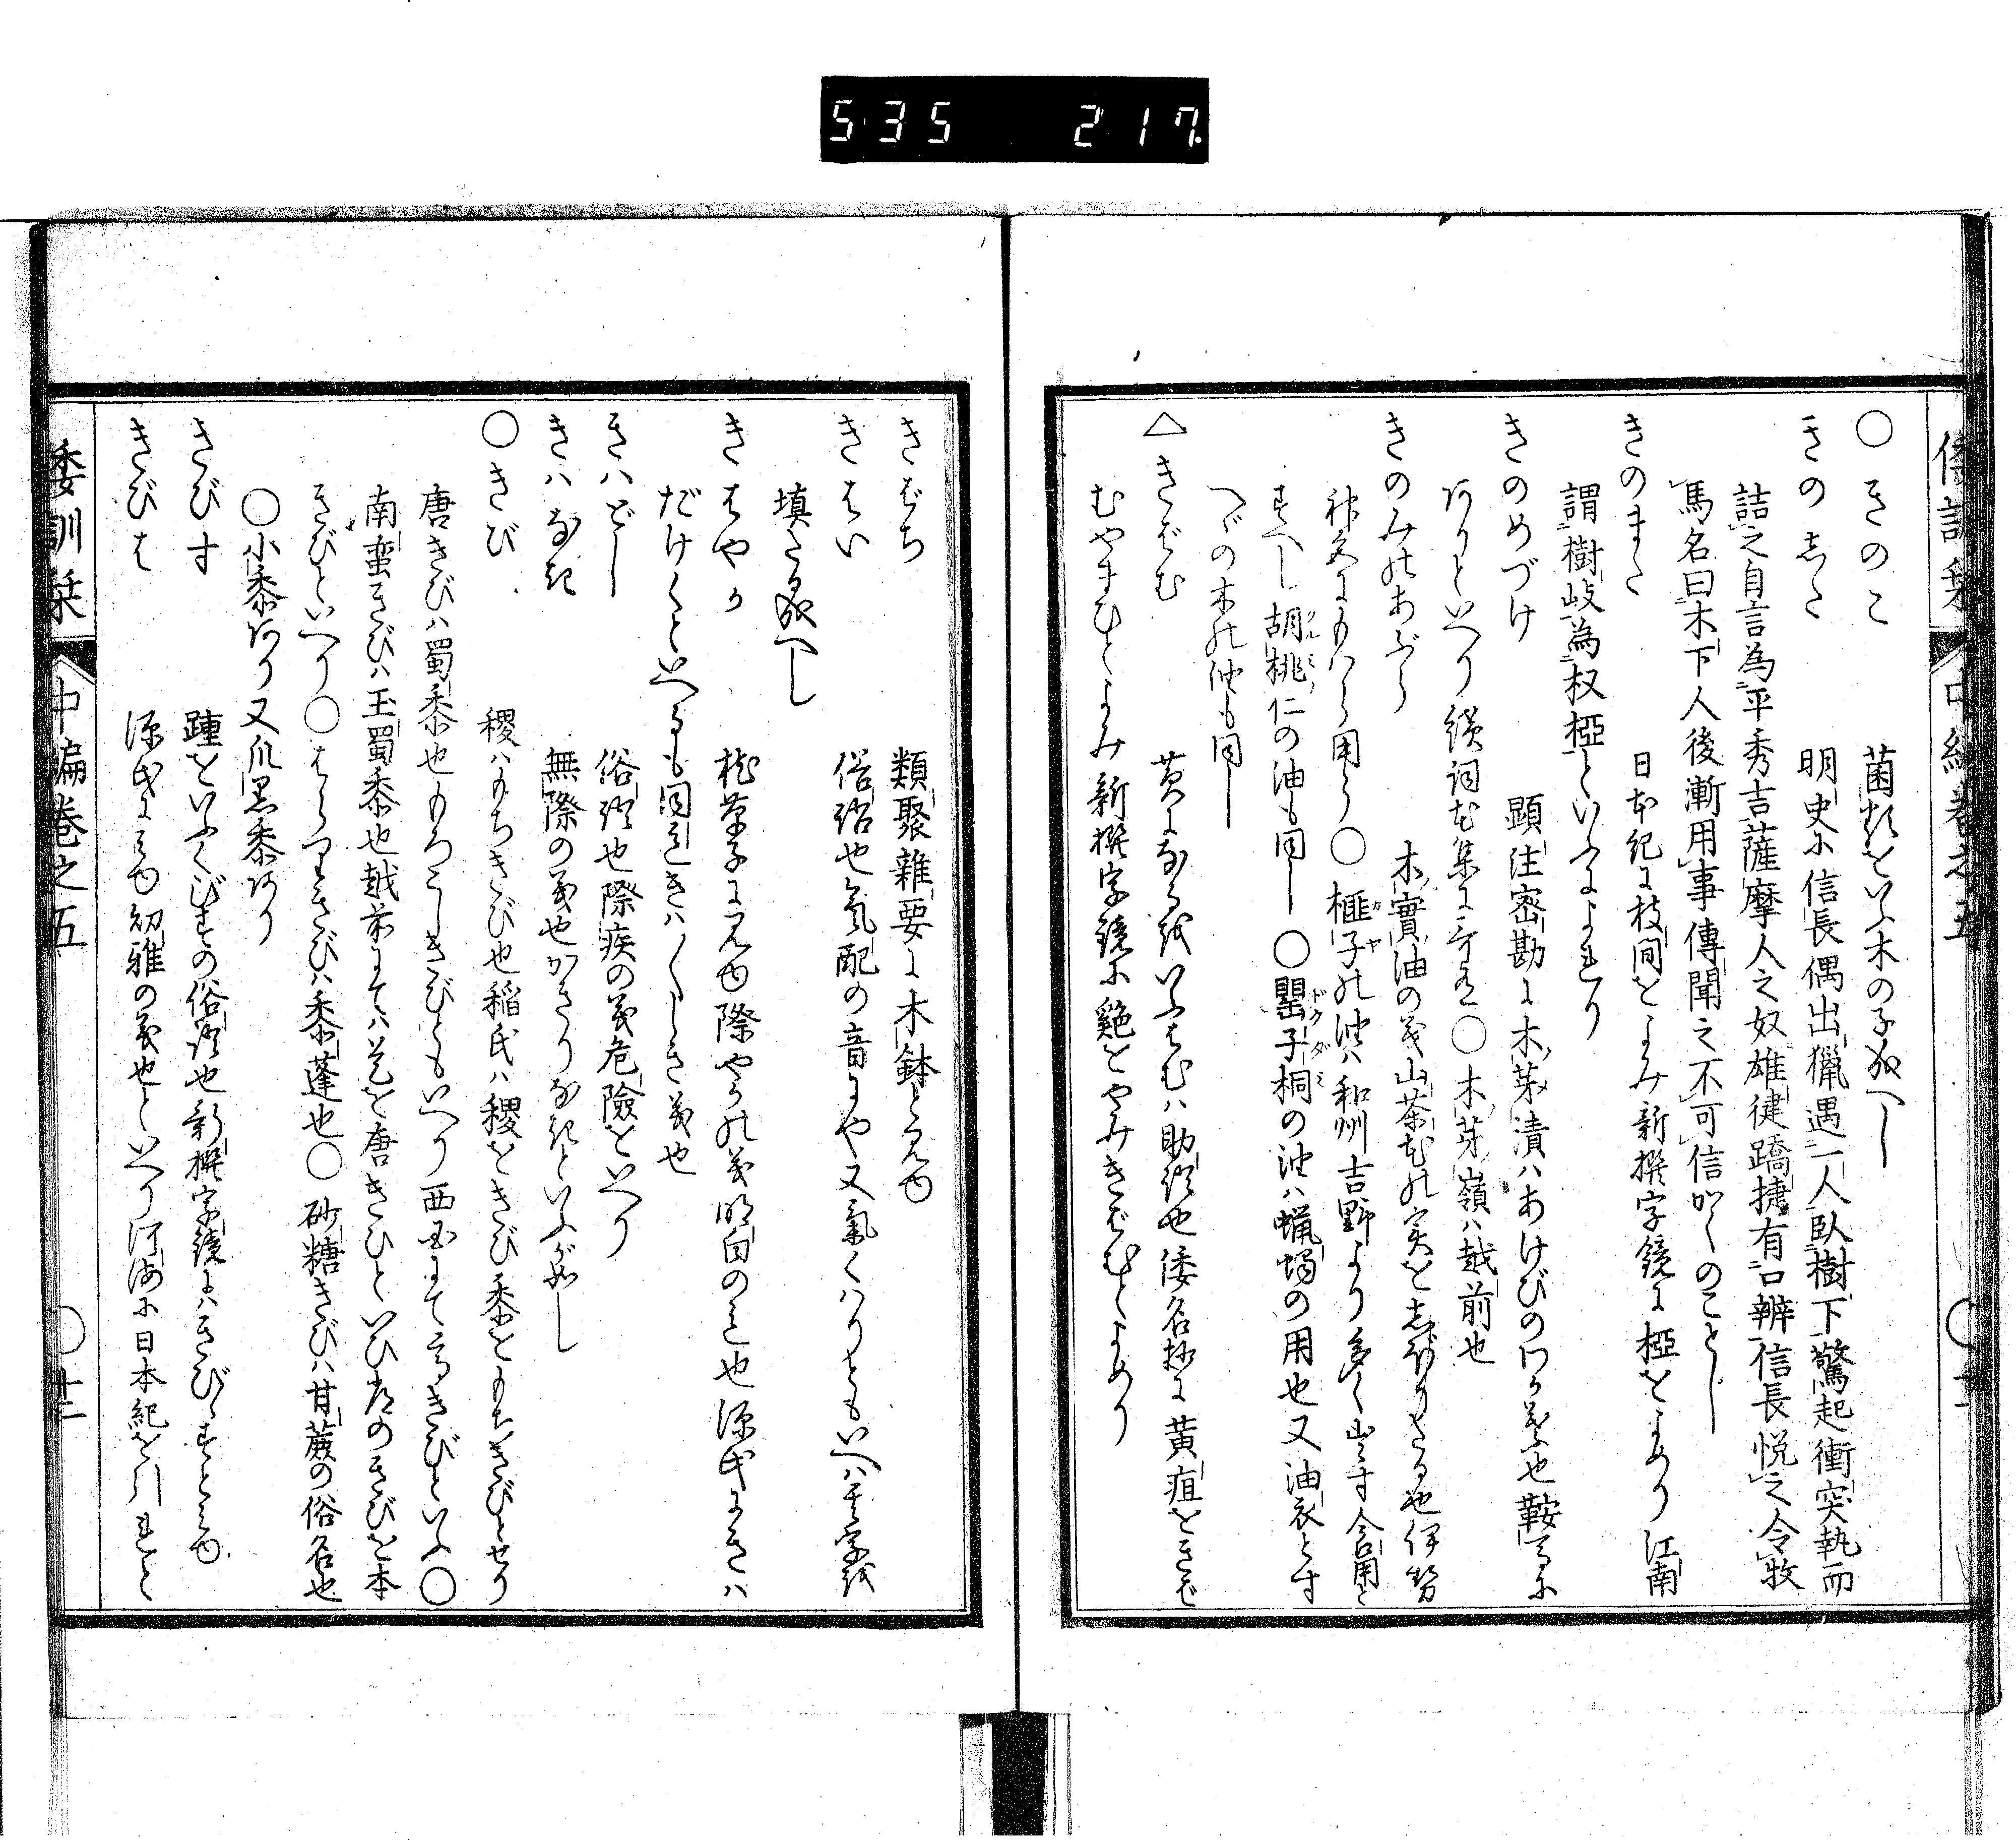 535 217.
倭訓栞 中編巻之五
○きのこ 菌類をいふ木の子成へし
きのした 明史に信長偶出獵遇一人臥樹下驚起衝突執而
詰之自言為平秀吉薩摩人之奴雄健蹻捷有口辨信長悦之令牧
馬名曰木下人後漸用事傳聞之不可信かくのことし
きのまた 日本紀に枝間をよみ新撰字鏡に椏をよめり江南
謂樹岐為杈椏といふによれり
きのめづけ 顕注密勘に木芽漬ハあけびのわか葉也鞍馬に
ありといへり ○木ノ芽嶺ハ越前也
きのみのあぶら 木ノ實油の義山茶花の実をしぼりたる也伊勢
神宮にもハら用う○榧子の油ハ和州吉野より多く出す食用と
すへし胡桃仁の油も同し○罌子桐の油ハ蝋燭の用也又油衣とす
へびの木の油も同し
△きばむ 黄になるをいふばむハ助語也倭名抄に黄疸をきば
むやまひとよみ新撰字鏡に をやみきばむとよめり
きばち 類聚雜要に木鉢と見ゆ
きはい 俗語也気配の音にや又氣くハりともいへハ其字を
填たる成へし
きはやか 枕草子に見ゆ際やかの義明白の意也源氏にきハ
だけくといへるも同しきハ〱しき義也
きハどし 俗語也際疾の義危險をいへり
きハなき 無際の義也かきりなきといふが如し
○きび 稷ハもちきび也稲氏ハ稷をきび黍をもちきびとせり
唐きびハ蜀黍也もろこしきびともいへり西国にて高きびといふ○
南蛮きびハ玉蜀黍也越前にてハ是を唐きひといひ常のきびを本
きびといへり○はらヽきびハ黍蓬也○砂糖きびハ甘蔗の俗名也
○小黍あり又爪黒黍あり
きびす 踵をいふくびすの俗語也新撰字鏡にハきびすとみゆ
きびは 源氏にみゆ幼雅の義也といへり河海に日本紀を引れと
倭訓栞 中編巻之五 ○廿二